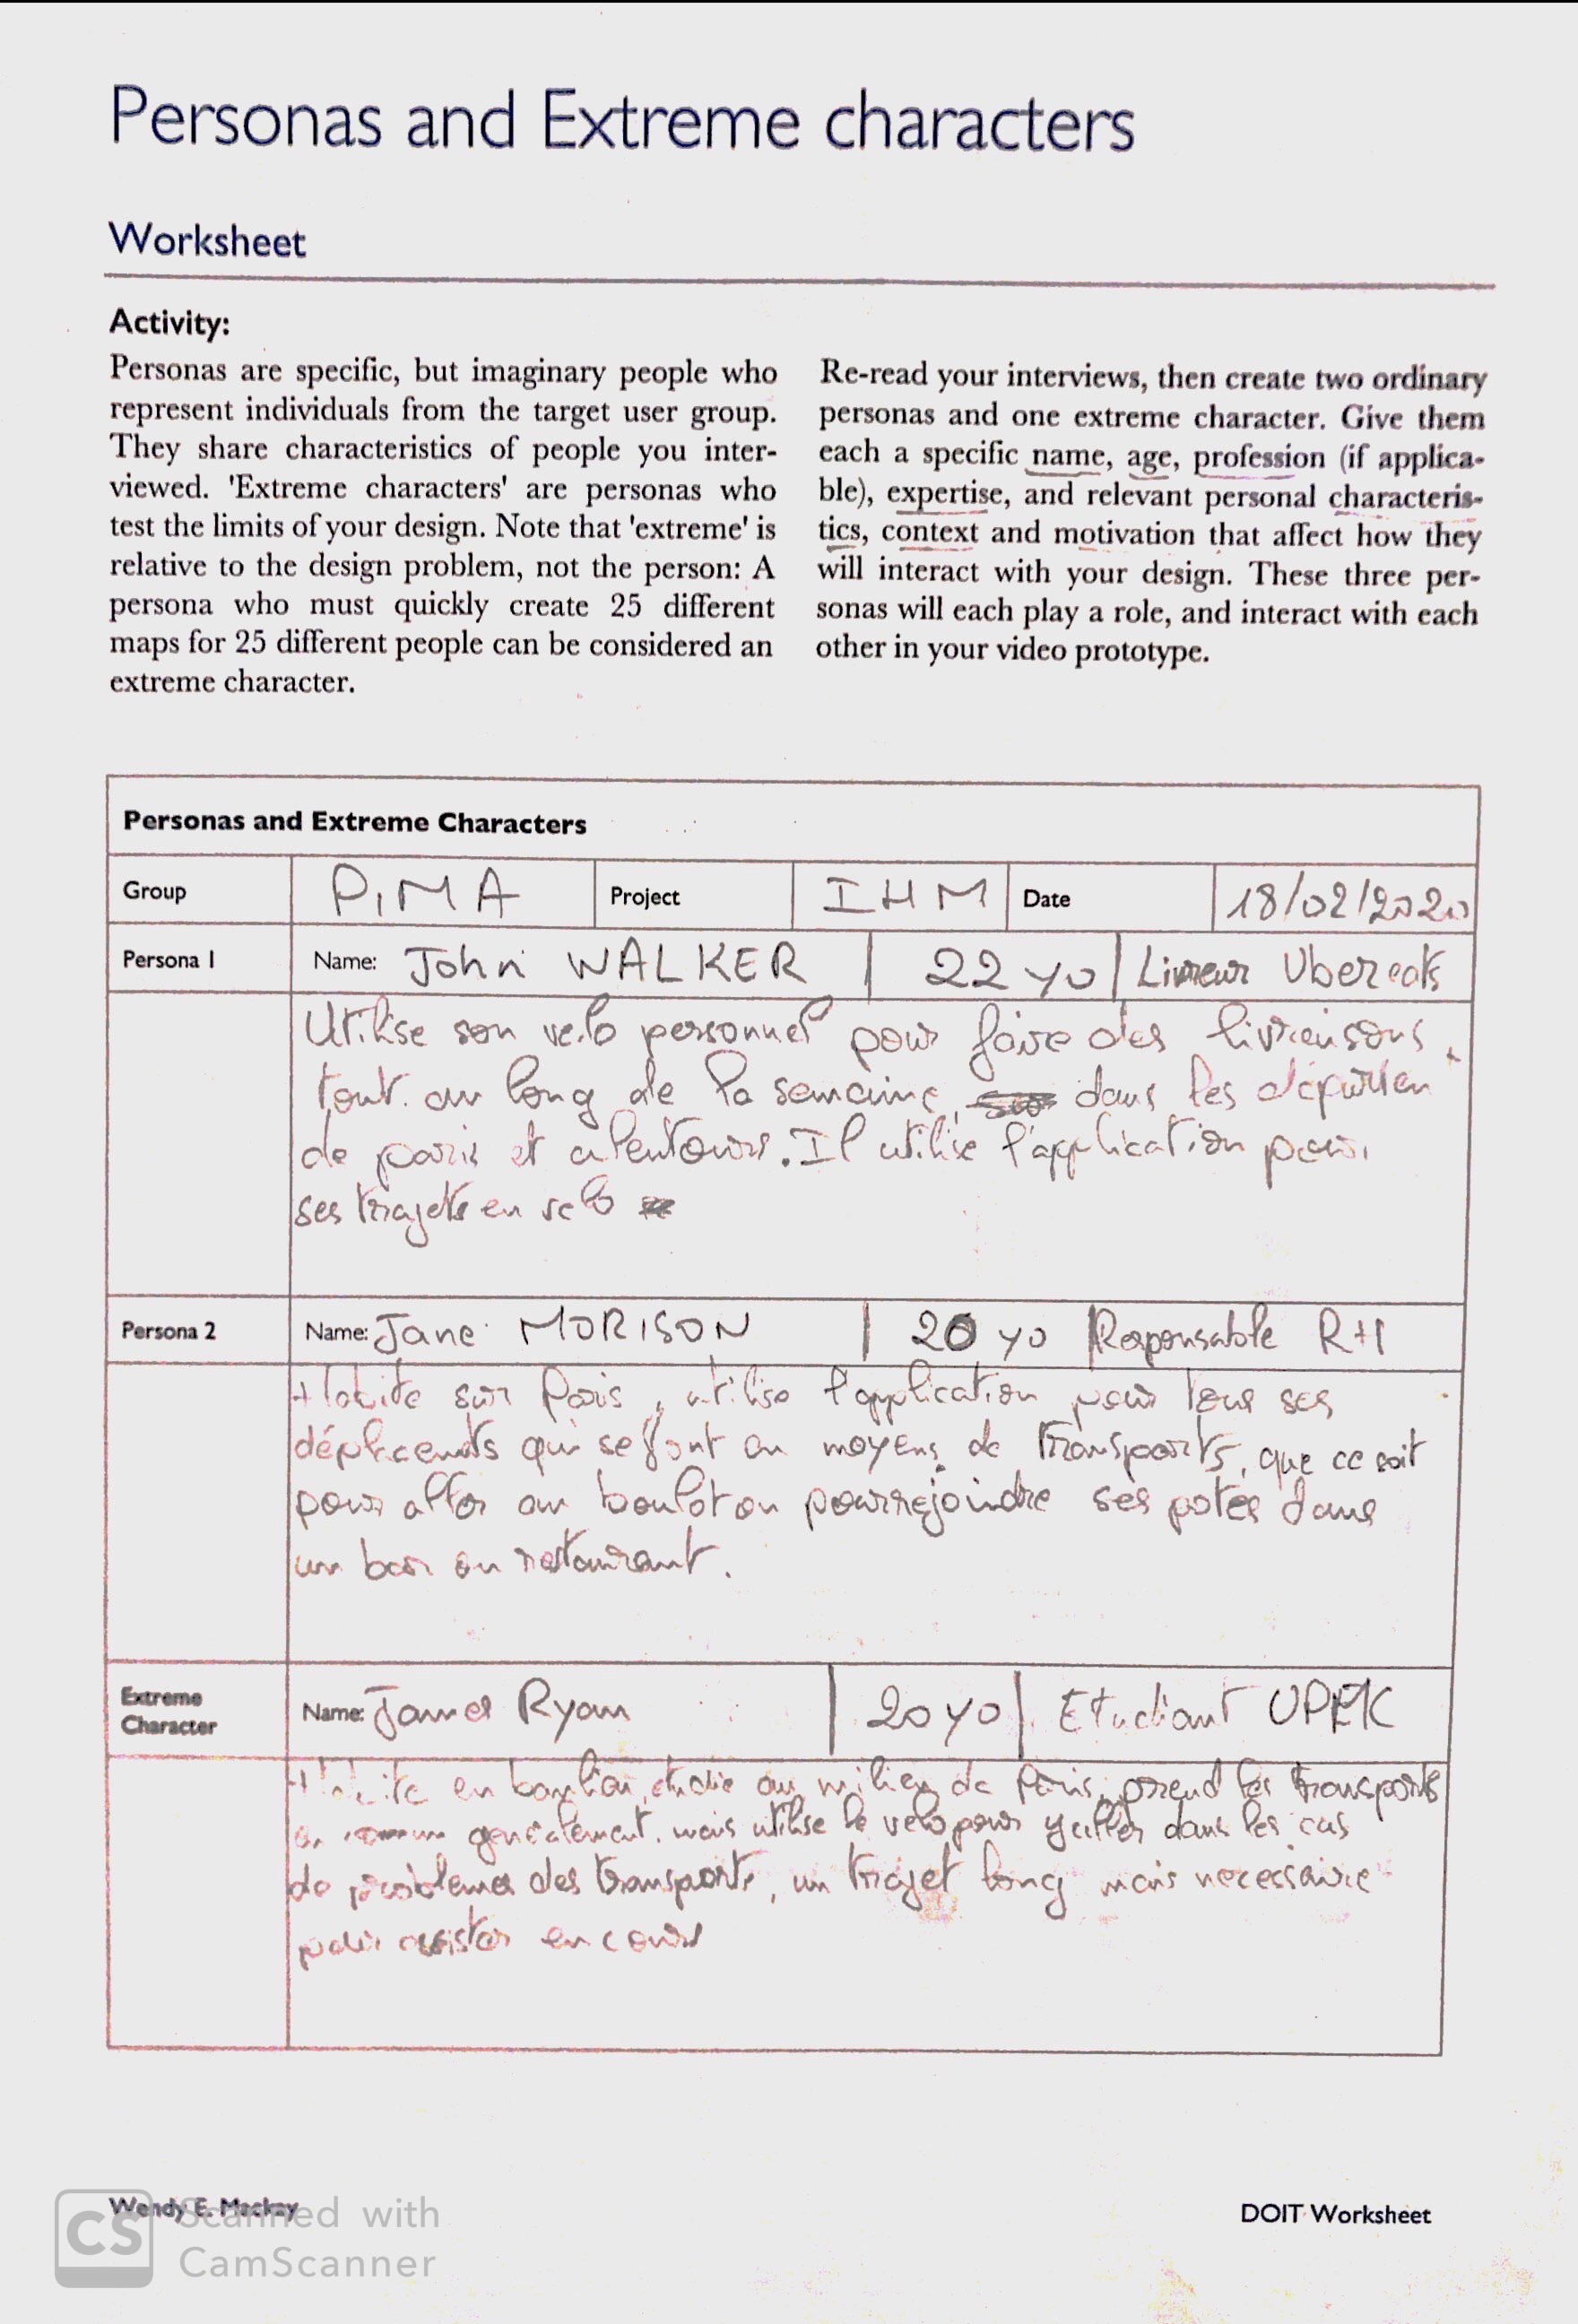 Personas and Extreme characters
Worksheet
Activity:
Personas are specific, but imaginary people who
represent individuals from the target user group.
They share characteristics of people you inter-
viewed. 'Extreme characters' are personas who
test the limits of your design. Note that 'extreme' is
relative to the design problem, not the person: A
persona who must quickly create 25 different
maps for 25 different people can be considered an
extreme character.
Re-read your interviews, then create two ordinary
personas and one extreme character. Give them
each a specific name, age, profession (if applica-
ble), expertise, and relevant personal characteris-
tics, context and motivation that affect how they
will interact with your design. These three per-
sonas will each play a role, and interact with each
other in your video prototype.
Personas and Extreme Characters
Group PIMA Project IHM Date 18/02/2020
Persona 1 Name: John WALKER | 22 yo | Livreur Ubereats
Utilise son velo personnel pour faire des livraisons
tout au long de la semaine, dans les
de paris et alentours. Il utilise l'application pour
ses trajets en velo
Persona 2 Name: Jane MORISON | 20 yo | Responsable RH
Habite sur Paris, utilise l'application pour tous ses
déplacements qui se font en moyens de transports, que ce soit
pour aller au boulot ou pour rejoindre ses potes dans
un bar ou restaurant.
Extreme
Character
Name: James Ryan | 20 yo | Etudiant UPEC
Habite en banlieu, etudie au milieu de Paris, prend les transports
en commun généralement, mais utilise le velo pour y aller dans les cas
de problemes des transports, un trajet long mais necessaire
pour assister en cours
Wendy E. Mackay
DOIT Worksheet
CS
Scanned with
CamScanner